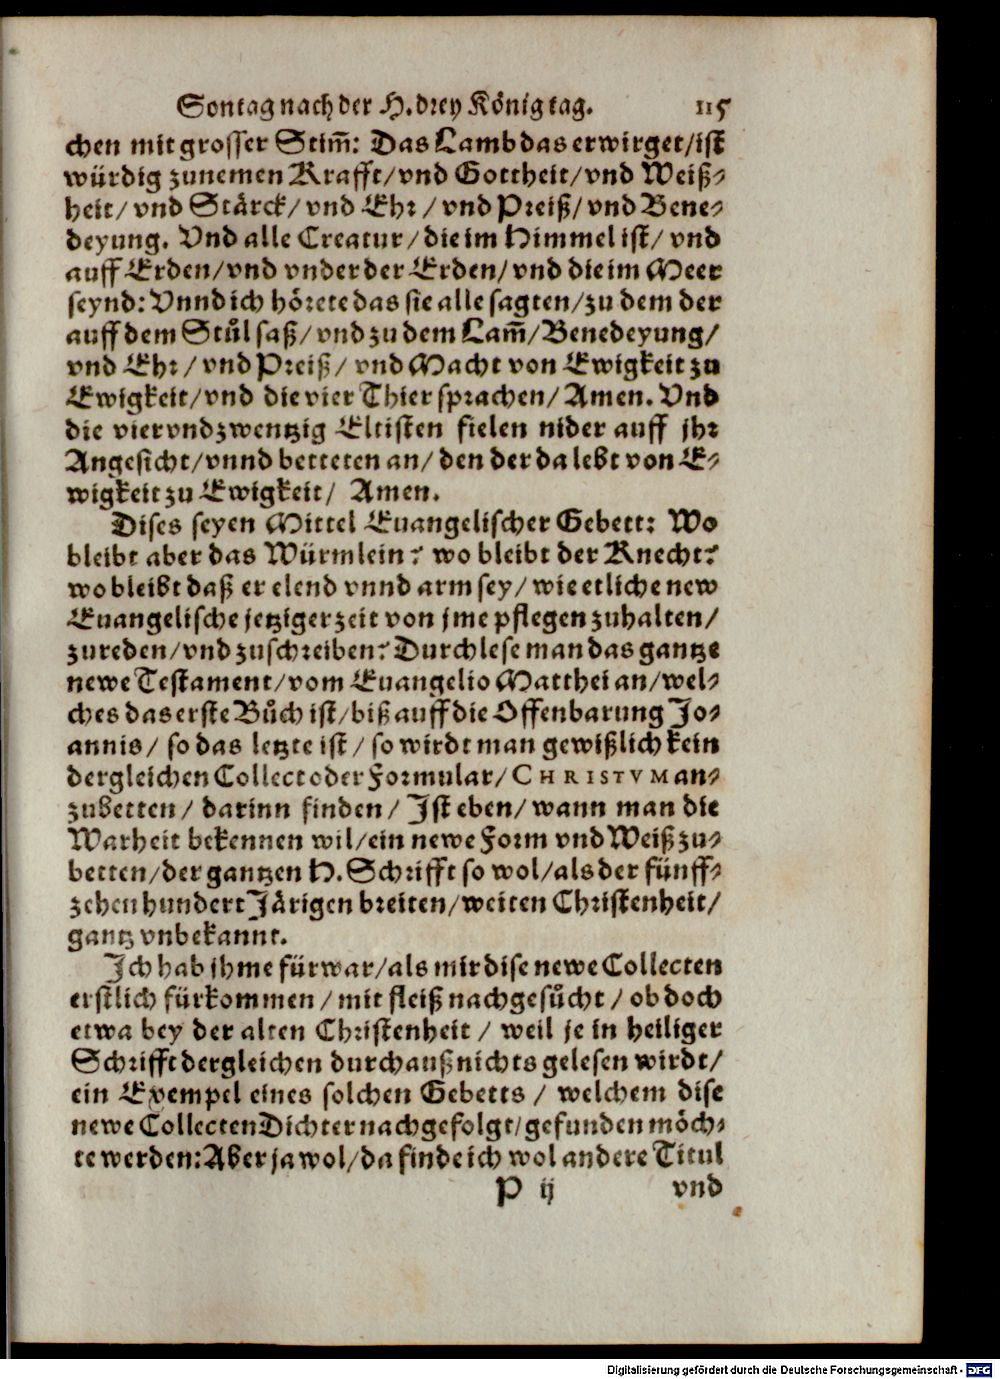 Sontag nach der H. drey König tag. 115
chen mit grosser Stim̃: Das Lamb das erwirget/ist
würdig zunemen Krafft/vnd Gottheit/vnd Weiß-
heit/vnd Stärck/vnd Ehr/vnd Preiß/vnd Bene-
deyung. Vnd alle Creatur/die im Himmel ist/vnd
auff Erden/vnd vnder der Erden/vnd die im Meer
seynd: Vnnd ich hörete das sie alle sagten/zu dem der
auff dem Stůl saß/vnd zu dem Lam̃/Benedeyung/
vnd Ehr/vnd Preiß/vnd Macht von Ewigkeit zu
Ewigkeit/vnd die vier Thier sprachen/Amen. Vnd
die viervndzwentzig Eltisten fielen nider auff jhr
Angesicht/vnnd betteten an/den der da lebt von E-
wigkeit zu Ewigkeit/ Amen.
Dises seyen Mittel Euangelischer Gebett: Wo
bleibt aber das Würmlein? wo bleibt der Knecht?
wo bleibt daß er elend vnnd arm sey/wie etliche new
Euangelische jetziger zeit von jme pflegen zuhalten/
zureden/vnd zuschreiben? Durchlese man das gantze
newe Testament/vom Euangelio Matthei an/wel-
ches das erste Bůch ist/biß auff die Offenbarung Jo-
annis/ so das letzte ist/so wirdt man gewißlich kein
dergleichen Collect oder Formular/CHRISTVM an-
zubetten/ darinn finden/ Ist eben/wann man die
Warheit bekennen wil/ein newe Form vnd Weiß zu-
betten/der gantzen H. Schrifft so wol/als der fünff-
zehen hundert Järigen breiten/weiten Christenheit/
gantz vnbekannt.
Ich hab jhme fürwar/als mir dise newe Collecten
erstlich fürkommen/mit fleiß nachgesůcht/ob doch
etwa bey der alten Christenheit/ weil je in heiliger
Schrifft dergleichen durchauß nichts gelesen wirdt/
ein Exempel eines solchen Gebetts/ welchem dise
newe Collecten Dichter nachgefolgt/gefunden möch-
te werden: Aber ja wol/da finde ich wol andere Titul
P ij vnd
Digitalisierung gefördert durch die Deutsche Forschungsgemeinschaft - DFG